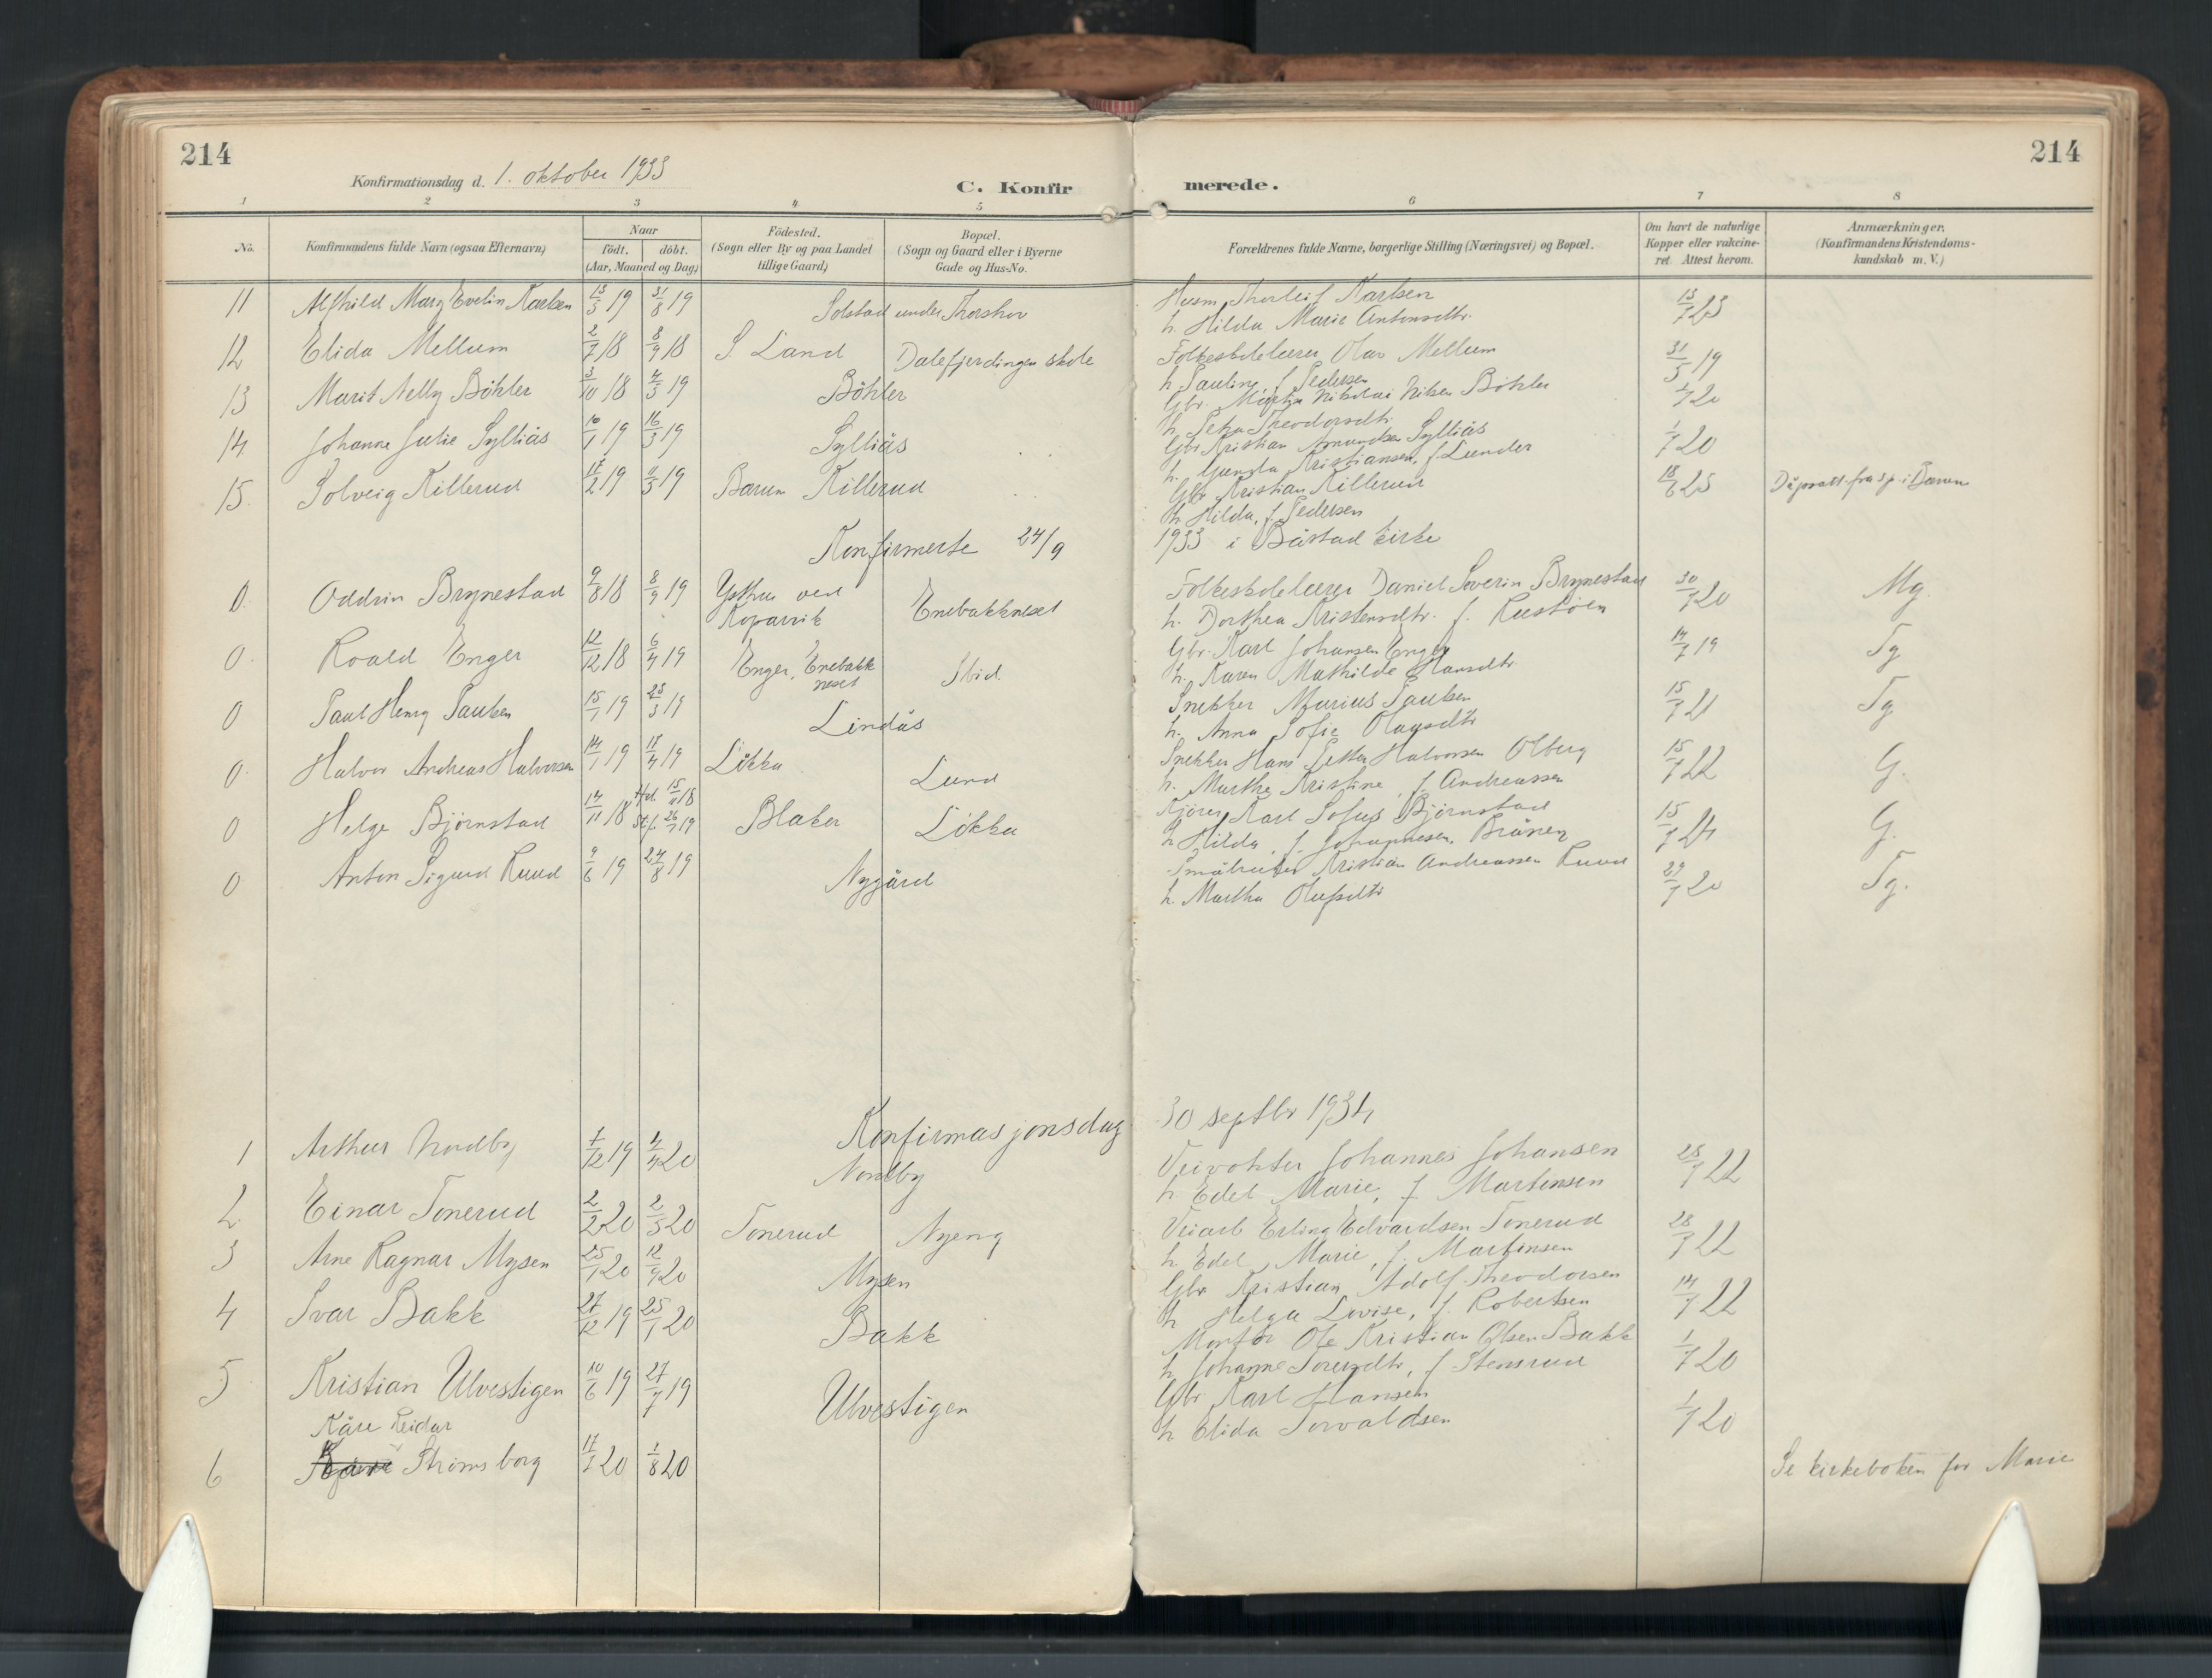 214
214
Konfirmationsdag d. 1. oktober 1933
C. Konfirmerede.
1 2 3 4 5 6 7 8
No.
Konfirmandens fulde Navn (ogsaa Efternavn)
Naar
födt. döbt.
(Aar, Maaned og Dag)
Födested.
(Sogn eller By og paa Landet
tillige Gaard)
Bopæl.
(Sogn og Gaard eller i Byerne
Gade og Hus-No.
Forældrenes fulde Navne, borgerlige Stilling (Næringsvei) og Bopæl.
Om havt de naturlige
Kopper eller vakcine-
ret. Attest herom.
Anmærkninger.
(Konfirmandens Kristendoms-
kundskab m. V.)
11 Alfhild Mary Evelin Karlsen 13/3 19 31/8 19 Solstad under Thorshov Husm. Thorleif Karlsen 13/7 23
h. Hilda Marie Antonsdtr.
12 Elida Mellum 2/7 18 8/9 18 S. Land Dalefjerdingen skole Folkeskolelærer Olav Mellum 31/5 19
h. Pauline, f. Pedersen
13 Marit Nelly Böhler 3/10 18 4/5 19 Böhler Gbr. Martin Nikolai Nilsen Böhler 1/7 20
h. Petra Theodorsdtr.
14 Johanne Julie Sylliås 10/1 19 16/3 19 Sylliås Gbr Kristian Amundsen Sylliås 1/7 20
h. Gunda Kristiansen, f Lunder
15 Solveig Killerud 12/2 19 11/5 19 Bærum Killerud Gbr Kristian Killerud 18/6 25 Dåpsatt. fra sp. i Bærum
h Hilda, f. Pedersen
Konfirmerte 24/9 1933 i Båstad kirke
0. Oddrun Brynestad 9/8 18 8/9 19 Ysthus ved Enebakkneset Folkeskolelærer Daniel Severin Brynestad 30/7 20 Mg.
Kopervik h. Dorthea Kristensdtr. f. Rustöen
0. Roald Enger 12/12 18 6/4 19 Enger, Enebakk Ibid. Gbr. Karl Johansen Enger 14/7 19 Tg
neset h. Karen Mathilde Hansdtr.
0 Paul Henry Paulsen 15/1 19 23/3 19 Lindås Snekker Marius Paulsen 15/7 21 Tg
h. Anna Sofie Olausdtr
0. Halvor Andreas Halvorsen 14/1 19 18/4 19 Lökka Lund Snekker Hans Petter Halvorsen Olberg 15/7 22 G.
h. Marthe Kristine f. Andreassen
0 Helge Björnstad 14/11 18 Hd. 15/11 18 Blaker Lökka Kjörer Karl Sofus Björnstad 15/7 24 G.
St.f. 26/1 19 h Hilda, f. Johannesen, Brånen
0 Anton Sigurd Ruud 9/6 19 24/8 19 Nygård Småbruker Kristian Andreassen Ruud 29/7 20 Tg.
h. Martha Olufsdtr
Konfirmasjonsdag 30 septbr 1934
1 Arthur Nordby 1/12 19 4/4 20 Nordby Veivokter Johannes Johansen 28/7 22
h. Edel Marie, f. Martinsen
2. Einar Tonerud 2/2 20 2/5 20 Tonerud Nyeng Veiarb Erling Edvardsen Tonerud 28/7 22
h. Edel Marie, f. Martinsen
3 Arne Ragnar Mysen 25/1 20 12/9 20 Mysen Gbr Kristian Adolf Theodorsen 14/7 22
h Helga Lovise, f. Robertsen
4 Ivar Bakk 27/12 19 25/1 20 Bakk Montör Ole Kristian Olsen Bakk 1/7 20
h Johanne f Stensrud
5 Kristian Ulvestigen 10/6 19 27/7 19 Ulvestigen Gbr Karl Hansen 1/7 20
h Elida Torvaldsen
Kåre Reidar
6 Strömsborg 17/7 20 1/8 20 Se kirkeboken for Marie